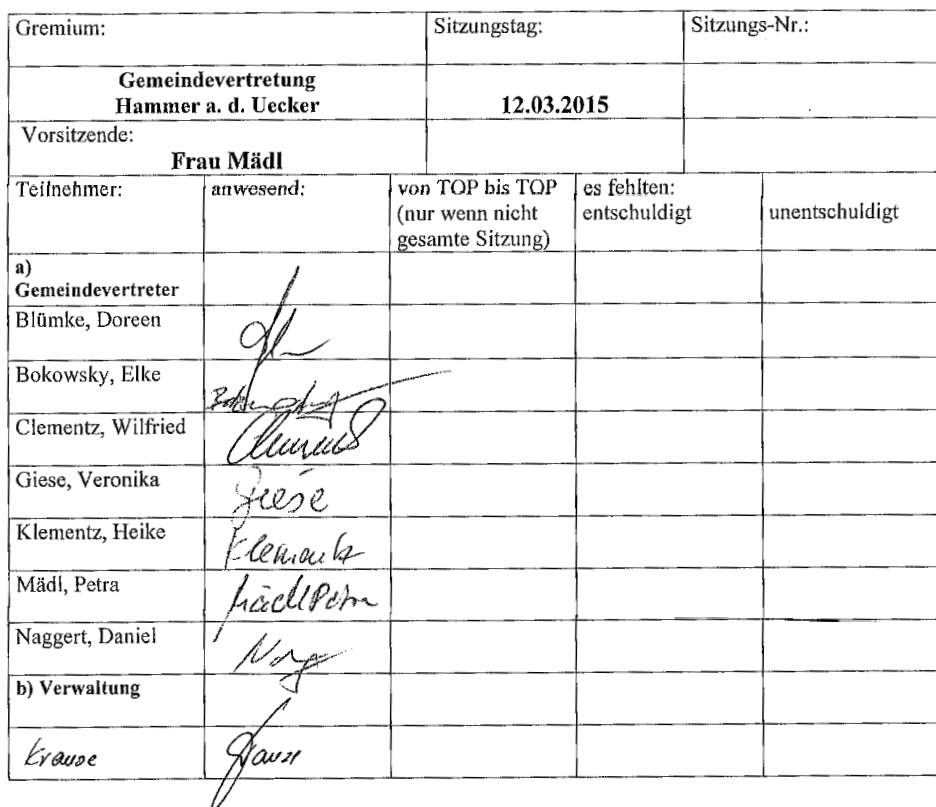 Gremium:
Sitzungstag:
Sitzungs-Nr.:
Gemeindevertretung
Hammer a. d. Uecker
12.03.2015
Vorsitzende:
Frau Mädl
Teilnehmer:
anwesend:
von TOP bis TOP
(nur wenn nicht
gesamte Sitzung)
es fehlten:
entschuldigt
unentschuldigt
a)
Gemeindevertreter
Blümke, Doreen
Bokowsky, Elke
Clementz, Wilfried
Giese, Veronika
Giese
Klementz, Heike
Klementz
Mädl, Petra
Mädl Petra
Naggert, Daniel
b) Verwaltung
Krause
Krause